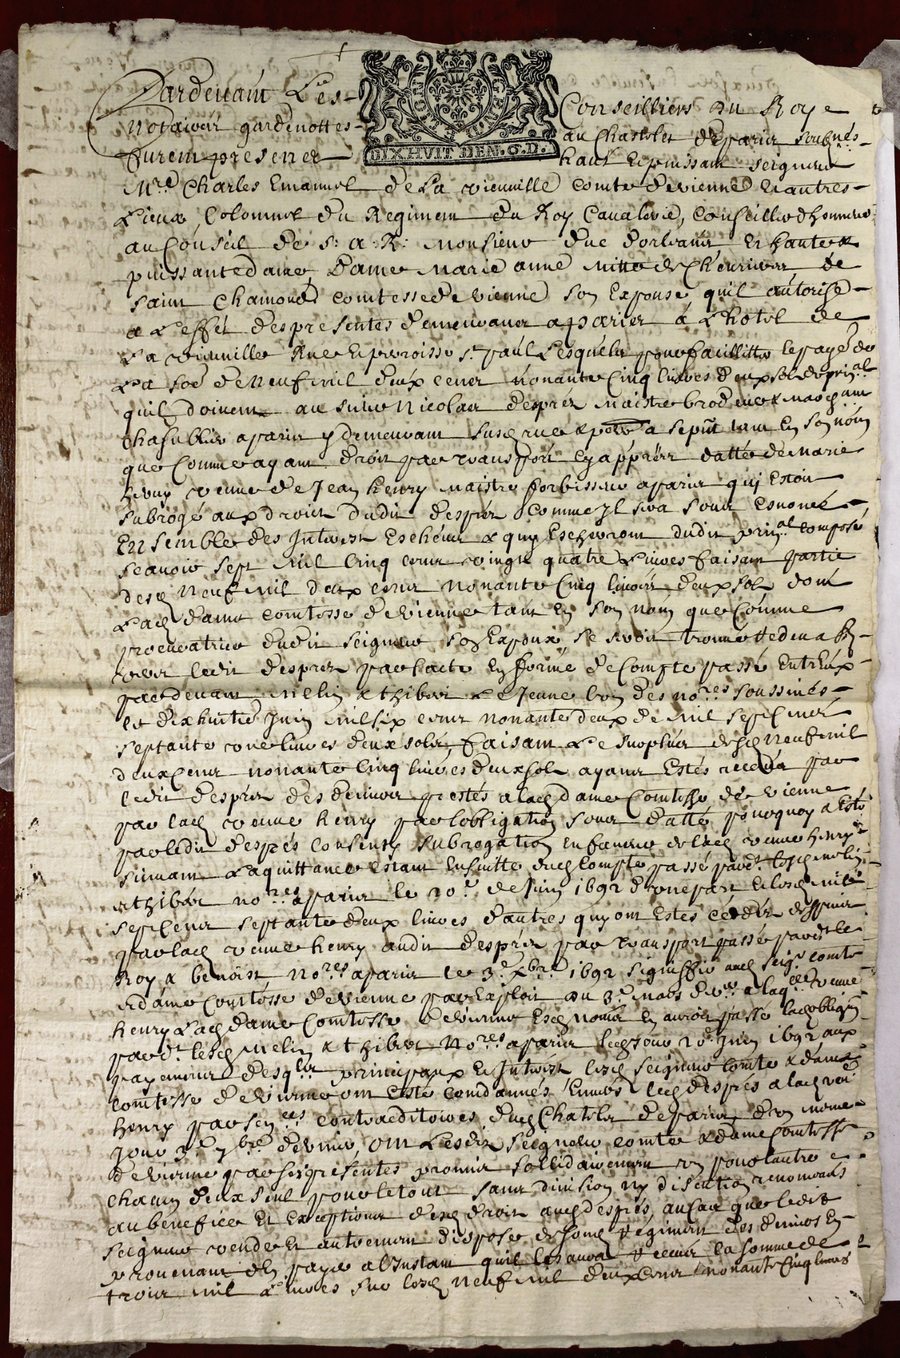 Pardevant Les Conseilliers du Roy
Notaires gardenottes au Chastelet de paris soubsnés
furent presenes haut et puissant seigneur
DIXHUIT DEN. G.D.
Mre Charles Emanuel de La vieuville comte de vienne et autres
Lieux Colonnel du Regiment du Roy Cavalerie, Conseiller d'honneur
au Conseil de S. A. R. Monsieur duc dorleans et haute &
puissante dame, Dame Marie anne Mitte de Cheuriers de
saint Chamond comtesse de vienne son Espouse quil autorise
a L'effet des presentes demeurans a paris a L'hotel de
La vieuville Rue et paroisse St paul Lesquels pour faciliter le payé de
La soe de Neuf mil deux cens nonante Cinq livres deux sols de prinal
quil doivent au sieur Nicolas despres Maistre brodeur & Marchant
chasublier a paris y demeurant susd rue & a sept tant En son nom
que Comme ayant droit par transport Cy apprès datté de Marie
veuve de Jean henry Maistre fourbisseur a paris qui Estoit
subrogé aux droits dudit despres Comme il sera Enoncé
Ensemble des Interest Escheus & qui Escheront dudit prinal composé
scavoir sept mil Cinq cens vingt quatre Livres faisant partie
desd Neuf mil deux cens nonante Cinq livres deux sols dont
Lad dame comtesse de vienne tant En son nom que Comme
procuratrice dudit seigneur son Espoux se seroit trouvée
vers ledit despres par Lacte En forme de Compte passé Entreux
pardevant Melin & thibert Le Jeune L'un des nores soussinés
le dixhuitie Juin mil six cens nonante deux de mil sept cens
septante livres deux sols faisant Le surplus desd Neuf mil
deux cens nonante Cinq livres deux sols ayant Estés
ledit despres des deniers prestés a lad dame Comtesse de vienne
par lad veuve henry par Lobligation datté pourquoy a Esté
par ledit despres consenty subrogation En faveur de lad veuve henry
suivant La quittance Estant Ensuitte dud Compte passé pardt lesd melin
& thibert nores a paris le 20e de Juin 1692
sept cens septante deux livres dautres qui ont Estés cédés
par lad veuve henry audit despres par transport passé pardt le
Roy & benoist Nores a paris le 3e xbre 1692 signiffié aud seigr comte
et dame Comtesse de vienne par Exploit du
henry Lad dame Comtesse de vienne Esd noms En auroit passé lobligon
par dt lesd Melin & thibert Nores a paris led jour 20e Juin 1692 aux
payement desqls principaux et Interest lesd seigneur Comte & dame
Comtesse de vienne ont Esté condamnés Envers led despres a lad veue
henry par sences contradictoires dud Chastelet de paris dun mesme
jour 7bre dernier, ont Lesdits seigneur comte & dame Comtesse
de vienne par ses presentes promis sollidairement un pour lautre
chacun deux seul pour le tout sans division ny discution renonceans
au benefice et Exceptions desd droit aud despres, au cas que ledit
seigneur vende et autrement dispose de sond Regiment des deniers En
provenant Et payé a Linstant quil les aura receus la somme de
trois mil Livres sur lesd Neuf mil deux cens nonante Cinq livres